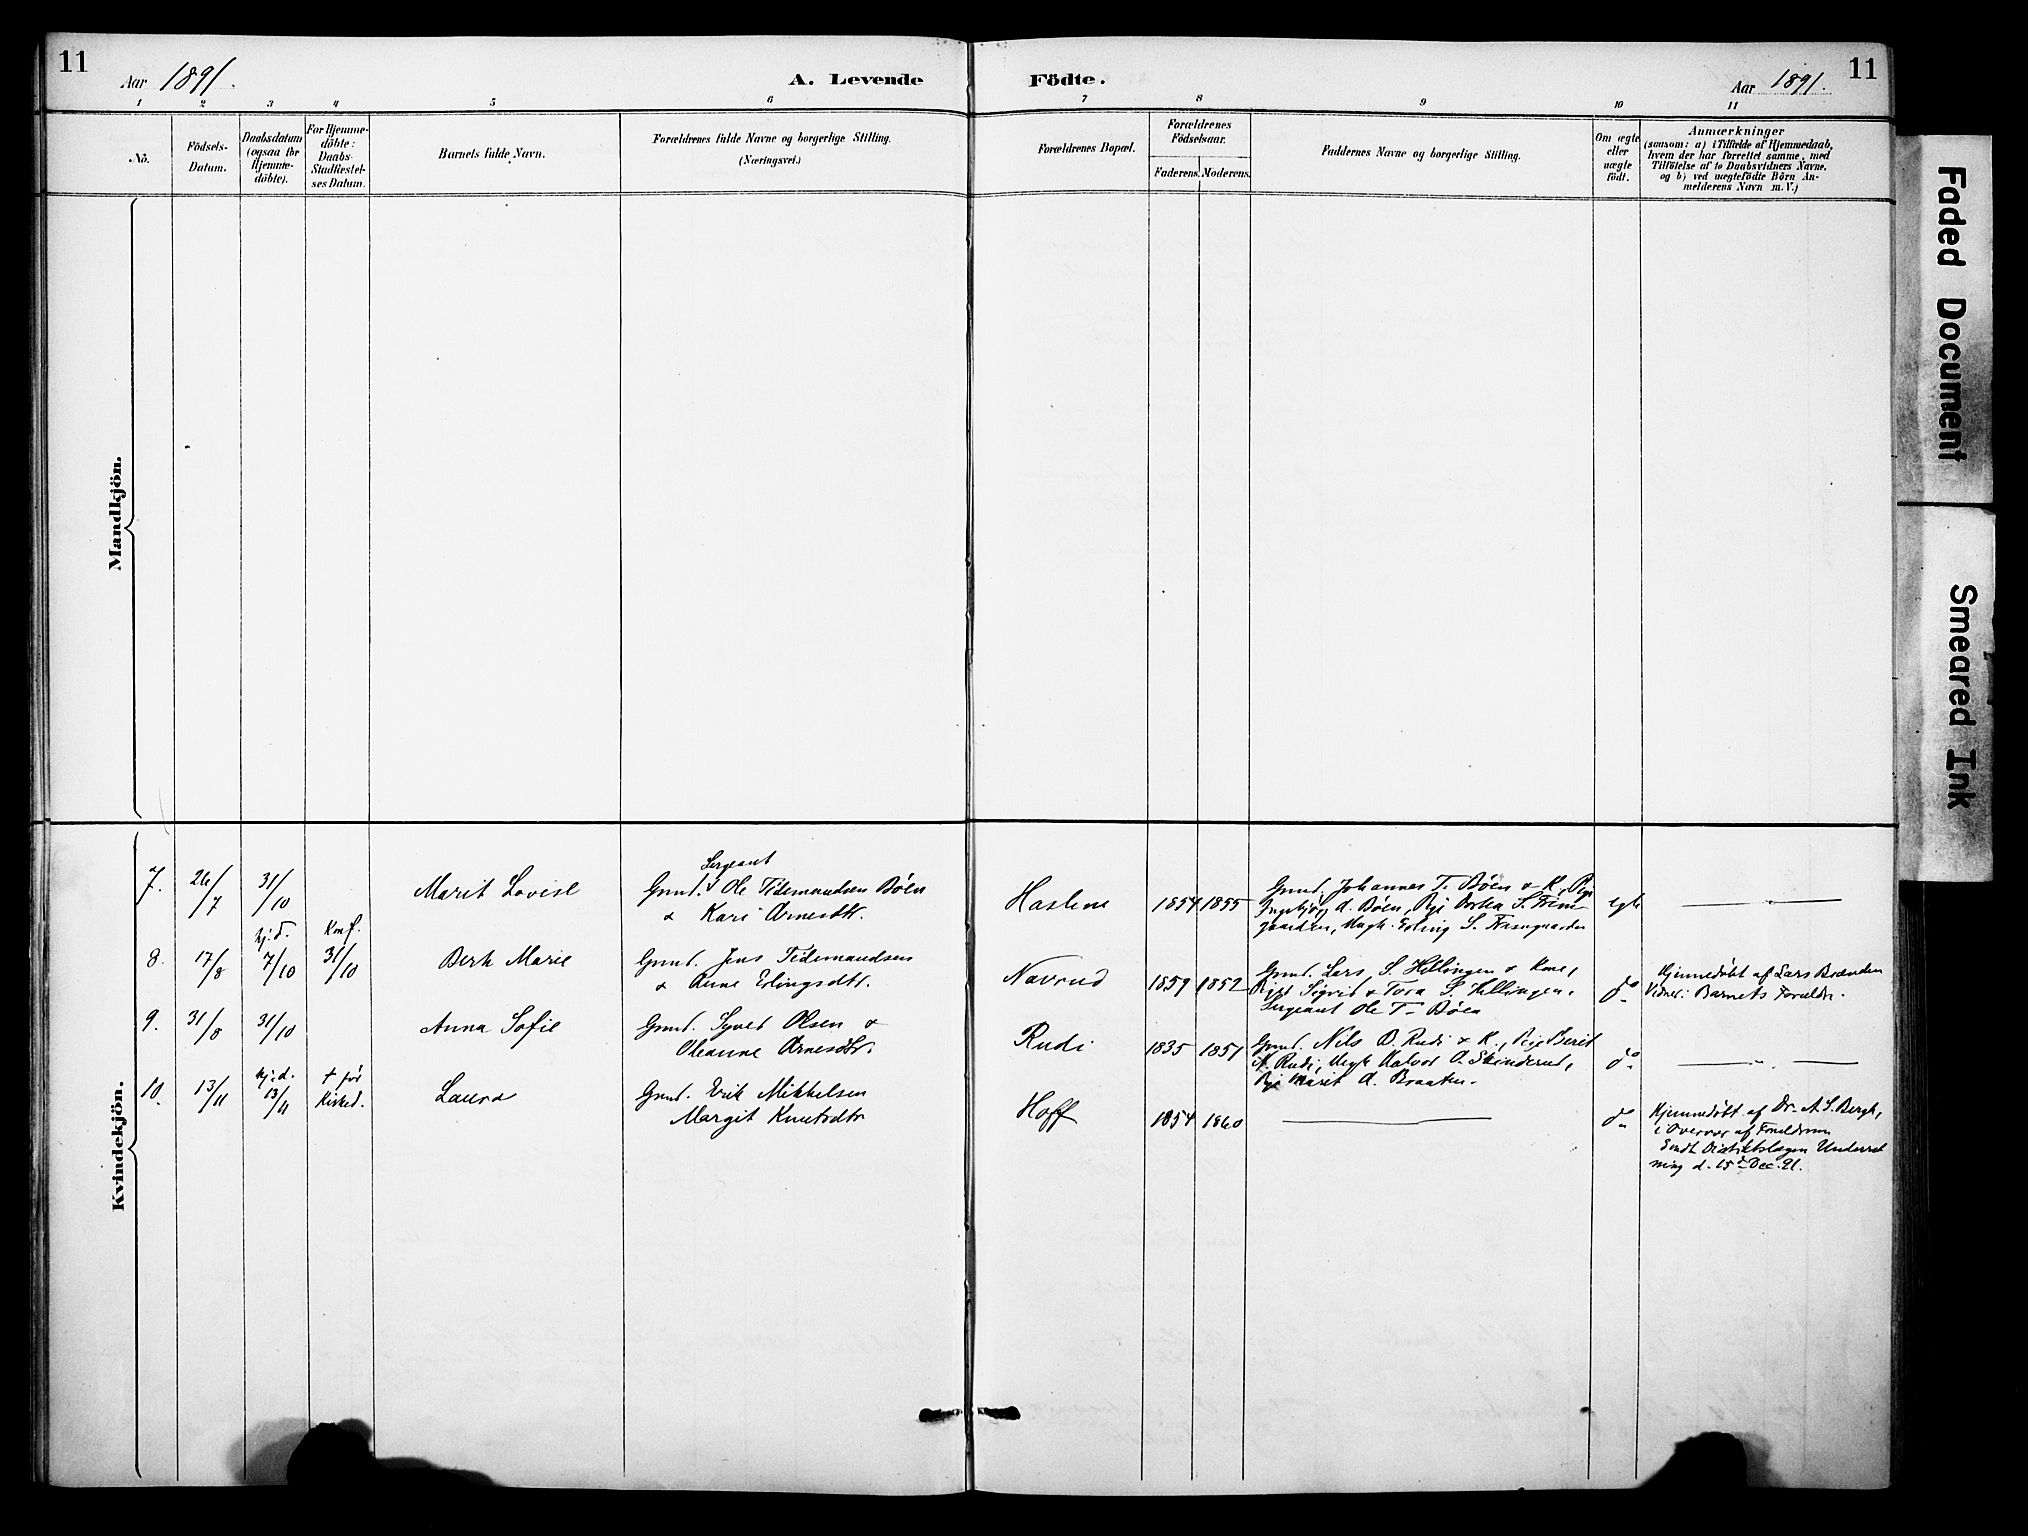 11
Aar 1891.
A. Levende Födte.
Aar 1891.
11
1 2 3 4 5 6 7 8 9 10 11
No.
Födsels-
Datum.
Daabsdatum
(ogsaa for
Hjemme-
döbte).
For Hjemme-
döbte:
Daabs-
Stadfæstel-
ses Datum.
Barnets fulde Navn.
Forældrenes fulde Navne og borgerlige Stilling.
(Næringsvei.)
Forældrenes Bopæl.
Forældrenes
Födselsaar.
Faderens. Moderens.
Faddernes Navne og borgerlige Stilling.
Om ægte
eller
uægte
födt.
Anmærkninger
(saasom: a) i Tilfælde af Hjemmedaab,
hvem der har forrettet samme, med
Tilföielse af to Daabsvidners Navne.
og b) ved uægtefödte Börn An-
melderens Navn m. V.)
Mandkjön.
Kvindekjön.
7. 26/7 31/10
Marit Lovise
Sergeant
Gmd. Ole Tidemandsen Bøen
& Kari Arnesdtr.
Haslene
1854 1855
Gmd. Johannes T. Bøen & K., Pige
Ingebjøg A. Bøen, Pige Dorthea S.
Ungk. Erling S.
egte
8. 17/8
hj.d.
7/10
Konf.
31/10
Berte Marie
Gmd. Jens Tidemandsen
& Anne Erlingsdtr.
Navrud
1859 1852
Gmd. Lars S. Hellingen & Kone,
Pige Sigrid & Tora S. Hellingen.
Sergeant Ole T. Bøen
do
Hjemmedøbt af Lars Brænden
Vidner: Barnets Forældre.
9. 31/8 31/10
Anna Sofie
Gmd. Syver Olsen &
Oleanne Arnesdtr.
Rudi
1835 1851
Gmd. Nils O. Rudi & K., Pige Berit
N. Rudi, Ungk. Halvor O. Skinderud,
Pige Marit A. Braaten.
do
10. 13/11
hj.d.
13/11
+ før
Kirked.
Laura
Gmd. Erik Mikkelsen
Margit Knutsdtr
Hoff
1854 1860
do
Hjemmedøbt af Dr. A. S. Bergh,
i Overvær af Forældrene
Sendt Distriktslægen Underret
ning d. 15de Dec. 91.
Faded Document
Smeared Ink